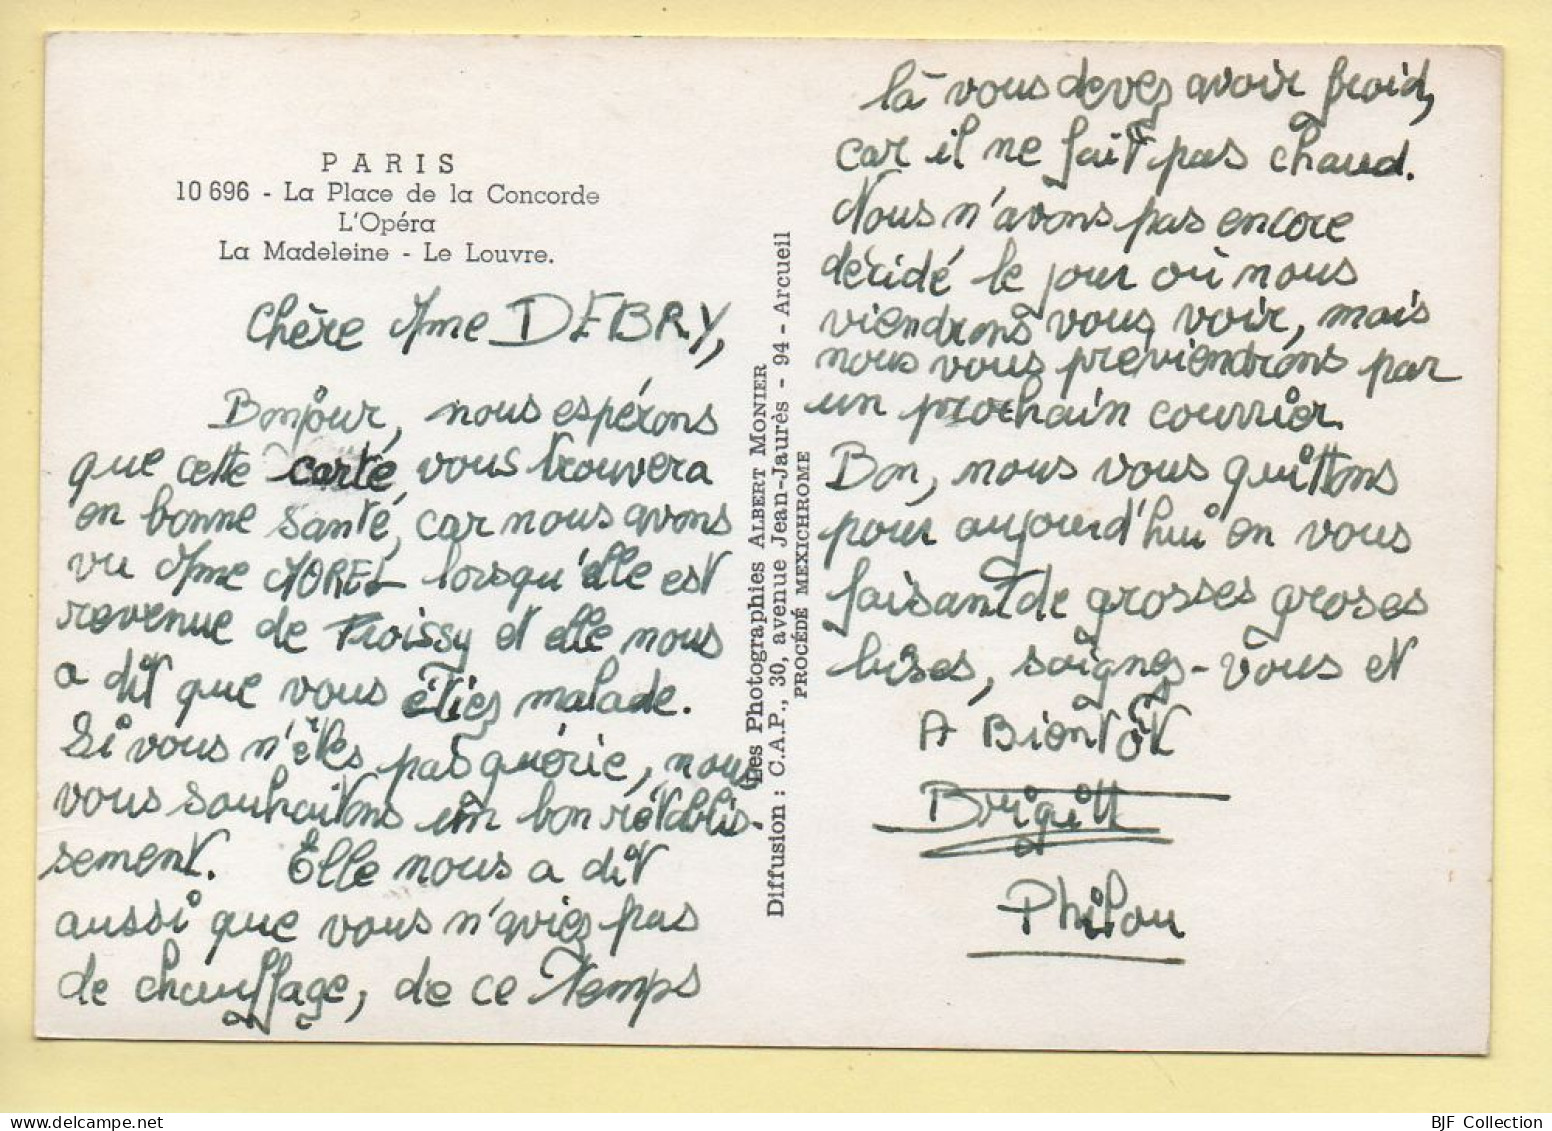 PARIS
10 696 - La Place de la Concorde
L'Opéra
La Madeleine - Le Louvre.
Chère Mme DEBRY,
Bonjour, nous espérons
que cette carte, vous trouvera
en bonne santé, car nous avons
vu Mme MOREL lorsqu'elle est
revenue de Froissy et elle nous
a dit que vous étiez malade.
Si vous n'êtes pas guérie, nous
vous souhaitons un bon rétablis-
sement. Elle nous a dit
aussi que vous n'aviez pas
de chauffage, de ce temps
Les Photographies ALBERT MONIER
Diffusion : C.A.P., 30, avenue Jean-Jaurès - 94 - Arcueil
PROCÉDÉ MEXICHROME
là vous devez avoir froid,
car il ne fait pas chaud.
Nous n'avons pas encore
décidé le jour où nous
viendrons vous voir, mais
nous vous previendrons par
un prochain courrier.
Bon, nous vous quittons
pour aujourd'hui en vous
faisant de grosses groses
bises, soignez-vous et
A Bientôt
Brigitt
et
Philou
BJF Collection